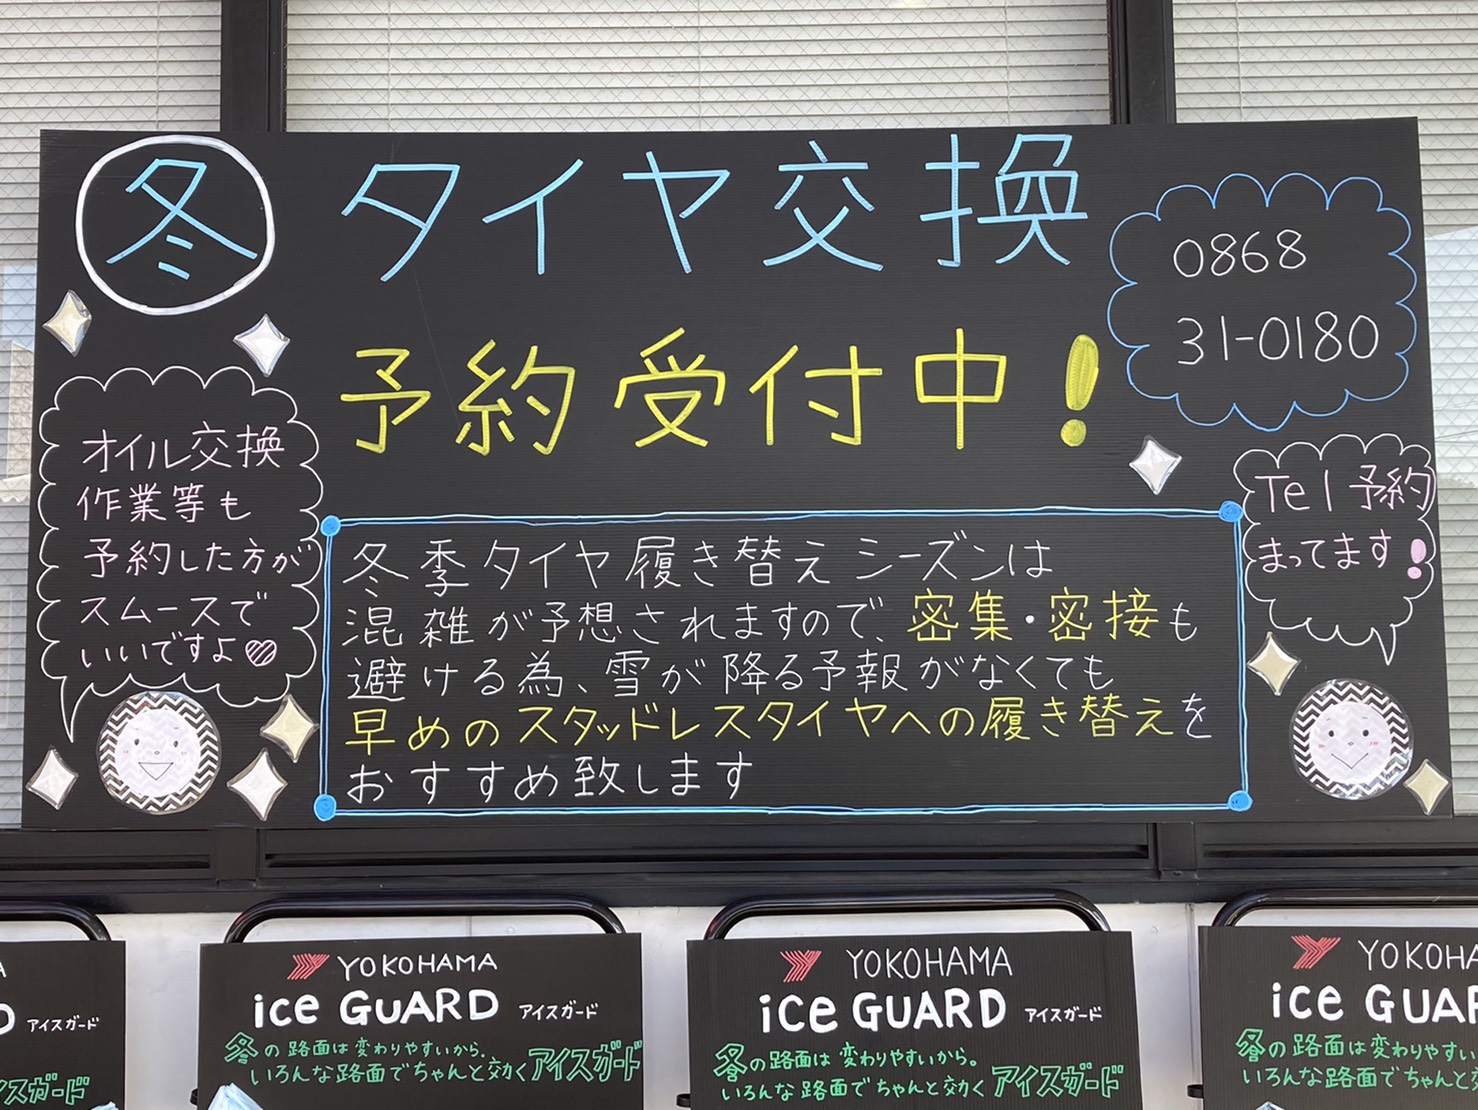 冬 タイヤ交換
予約受付中!
0868
31-0180
オイル交換
作業等も
予約した方が
スムースで
いいですよ♡
Tel予約
まってます!
冬季タイヤ履き替えシーズンは
混雑が予想されますので、密集・密接も
避ける為、雪が降る予報がなくても
早めのスタッドレスタイヤへの履き替えを
おすすめ致します
アイスガード
YOKOHAMA
ice GUARD アイスガード
冬の路面は変わりやすいから。
いろんな路面でちゃんと効くアイスガード
YOKOHAMA
ice GUARD アイスガード
冬の路面は変わりやすいから。
いろんな路面でちゃんと効くアイスガード
YOKOHA
ice GUAR
冬の路面は変わりやすい
いろんな路面でちゃんと